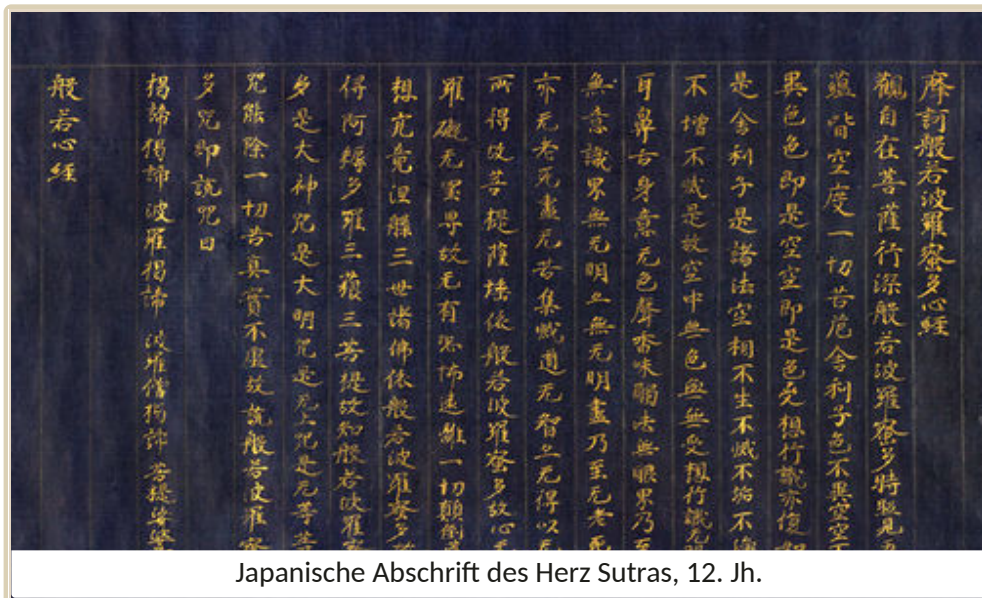 摩訶般若波羅蜜多心經
觀自在菩薩行深般若波羅蜜多時照見五
蘊皆空度一切苦厄舍利子色不異空空不
異色色即是空空即是色受想行識亦復如
是舍利子是諸法空相不生不滅不垢不淨
不增不減是故空中無色無無受想行識无眼
耳鼻舌身意无色聲香味觸法無眼界乃至
無意識界無无明亦無无明盡乃至无老死
亦无老死盡无苦集滅道无智亦无得以无
所得故菩提薩埵依般若波羅蜜多故心无
罣礙无罣导故无有恐怖遠離一切顛倒夢
想究竟涅槃三世諸佛依般若波羅蜜多故
得阿耨多羅三藐三菩提故知般若波羅蜜
多是大神咒是大明咒是无上咒是无等等
咒能除一切苦真實不虛故說般若波羅蜜
多咒即說咒曰
揭諦揭諦波羅揭諦波羅僧揭諦菩提娑婆
般若心經
Japanische Abschrift des Herz Sutras, 12. Jh.